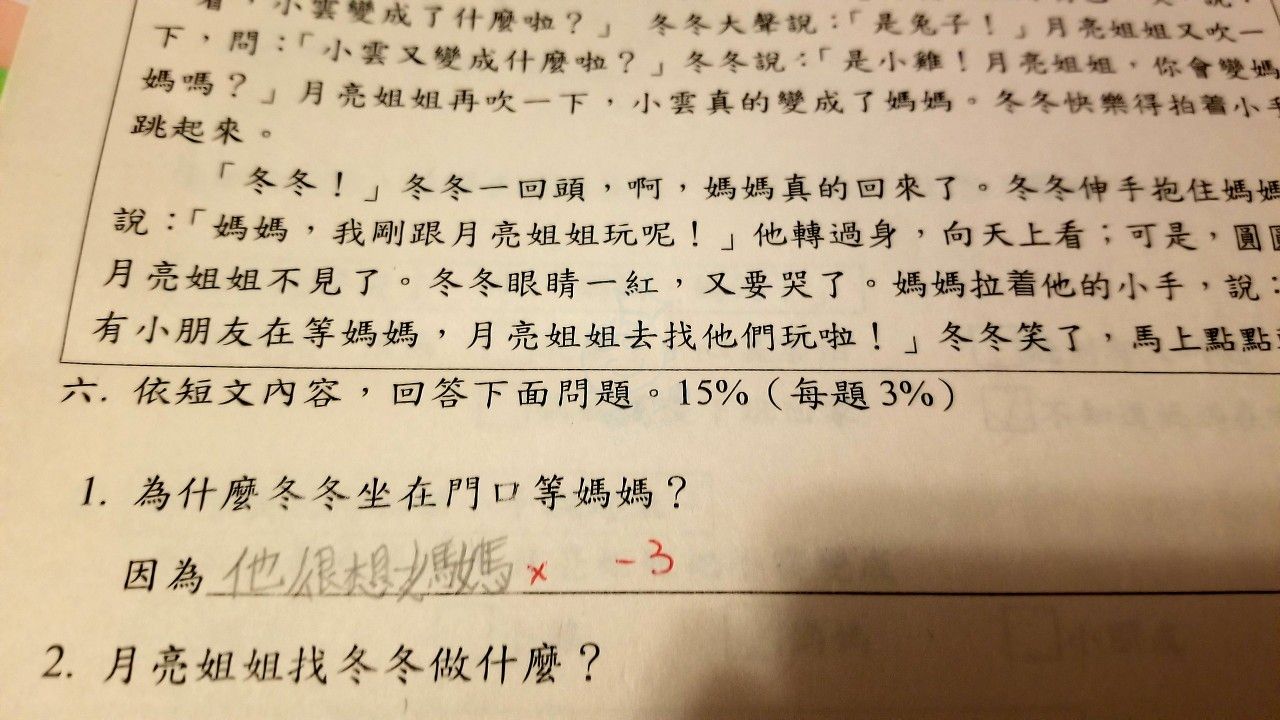 看，小雲變成了什麼啦？」 冬冬大聲說：「是兔子！」月亮姐姐又吹一
下，問：「小雲又變成什麼啦？」冬冬說：「是小雞！月亮姐姐，你會變媽
媽嗎？」月亮姐姐再吹一下，小雲真的變成了媽媽。冬冬快樂得拍着小手
跳起來。
「冬冬！」冬冬一回頭，啊，媽媽真的回來了。冬冬伸手抱住媽媽
說：「媽媽，我剛跟月亮姐姐玩呢！」他轉過身，向天上看；可是，圓圓
月亮姐姐不見了。冬冬眼睛一紅，又要哭了。媽媽拉着他的小手，說：
有小朋友在等媽媽，月亮姐姐去找他們玩啦！」冬冬笑了，馬上點點
六. 依短文內容，回答下面問題。15%（每題 3%）
1. 為什麼冬冬坐在門口等媽媽？
因為 他很想媽媽 × -3
2. 月亮姐姐找冬冬做什麼？